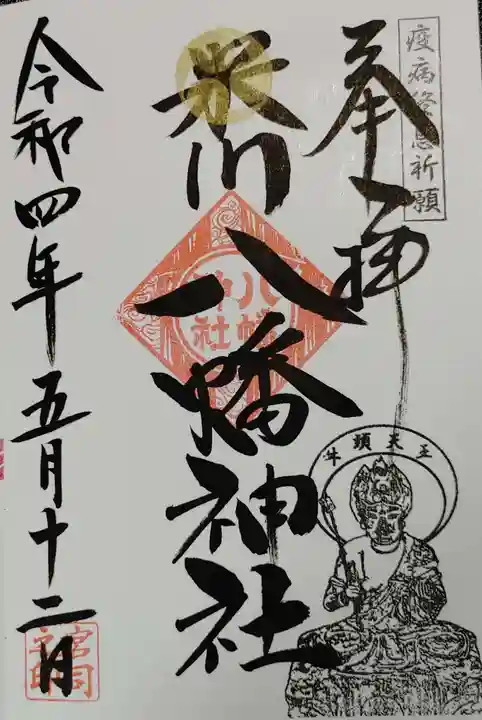 疫病終息祈願
奉拝
米川八幡神社
八幡神社
牛頭天王
令和四年五月十二日
宮司之印